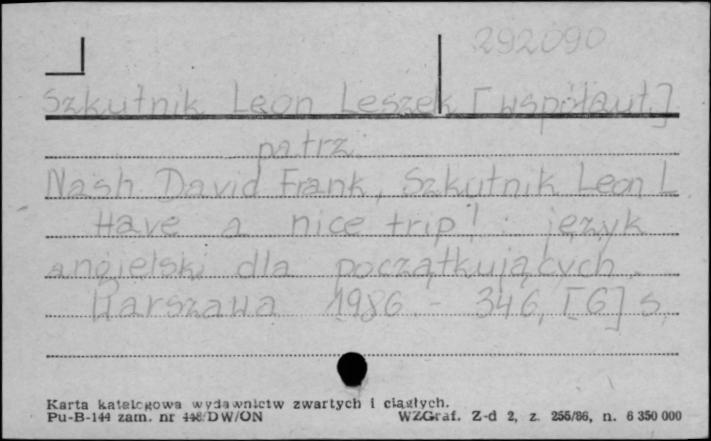 292090
Szkutnik Leon Leszek [współaut.]
patrz:
Nash David Frank, Szkutnik Leon L.
Have a nice trip! : język
angielski dla początkujących.
Warszawa 1986. - 346, [6] s.
Karta katalogowa wydawnictw zwartych i ciągłych.
Pu-B-144 zam. nr 448/DW/ON WZGraf. Z-d 2, z. 255/86, n. 6 350 000